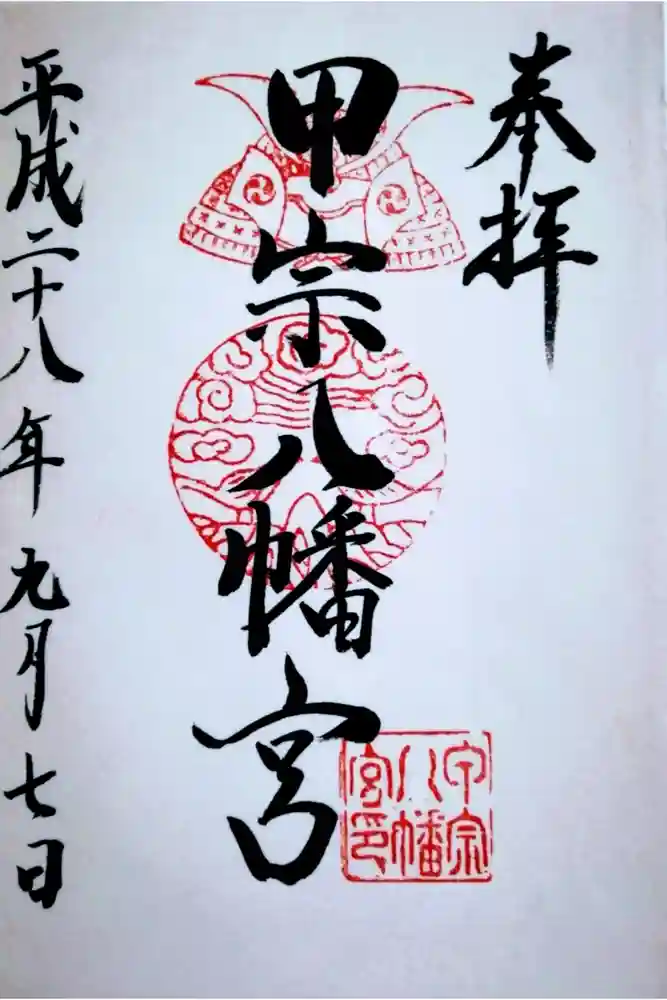 奉拝
甲宗八幡宮
甲宗
八幡
宮印
平成二十八年九月七日